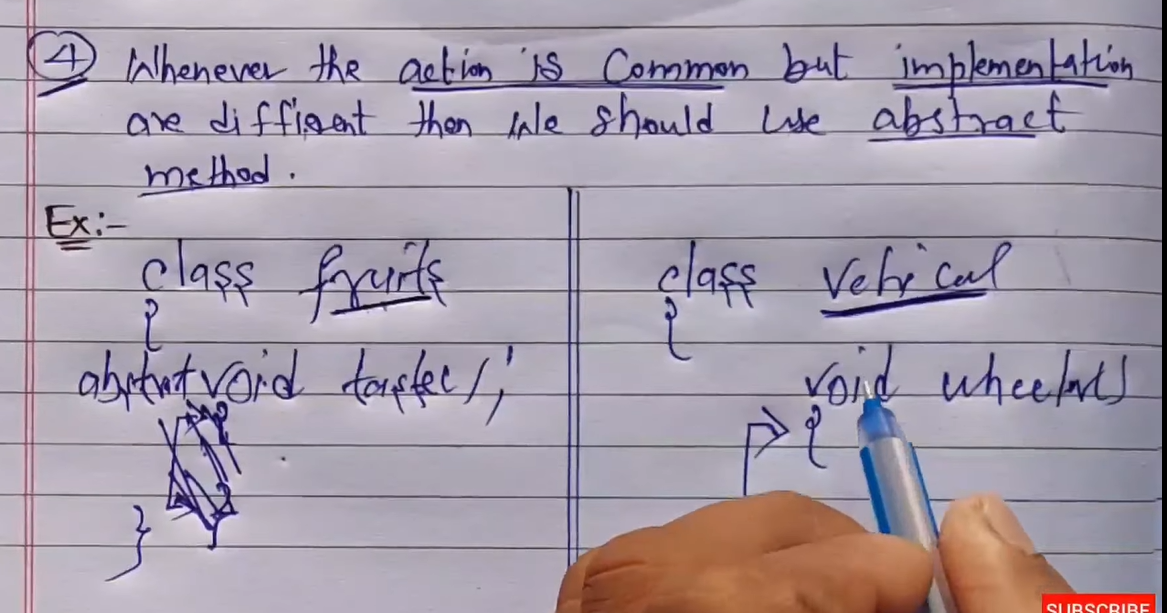 4 Whenever the action is Common but implementation
are diffient then we should use abstract
method.
Ex:-
class fruits
{
void
}
class Vehical
{
void
{
SUBSCRIBE